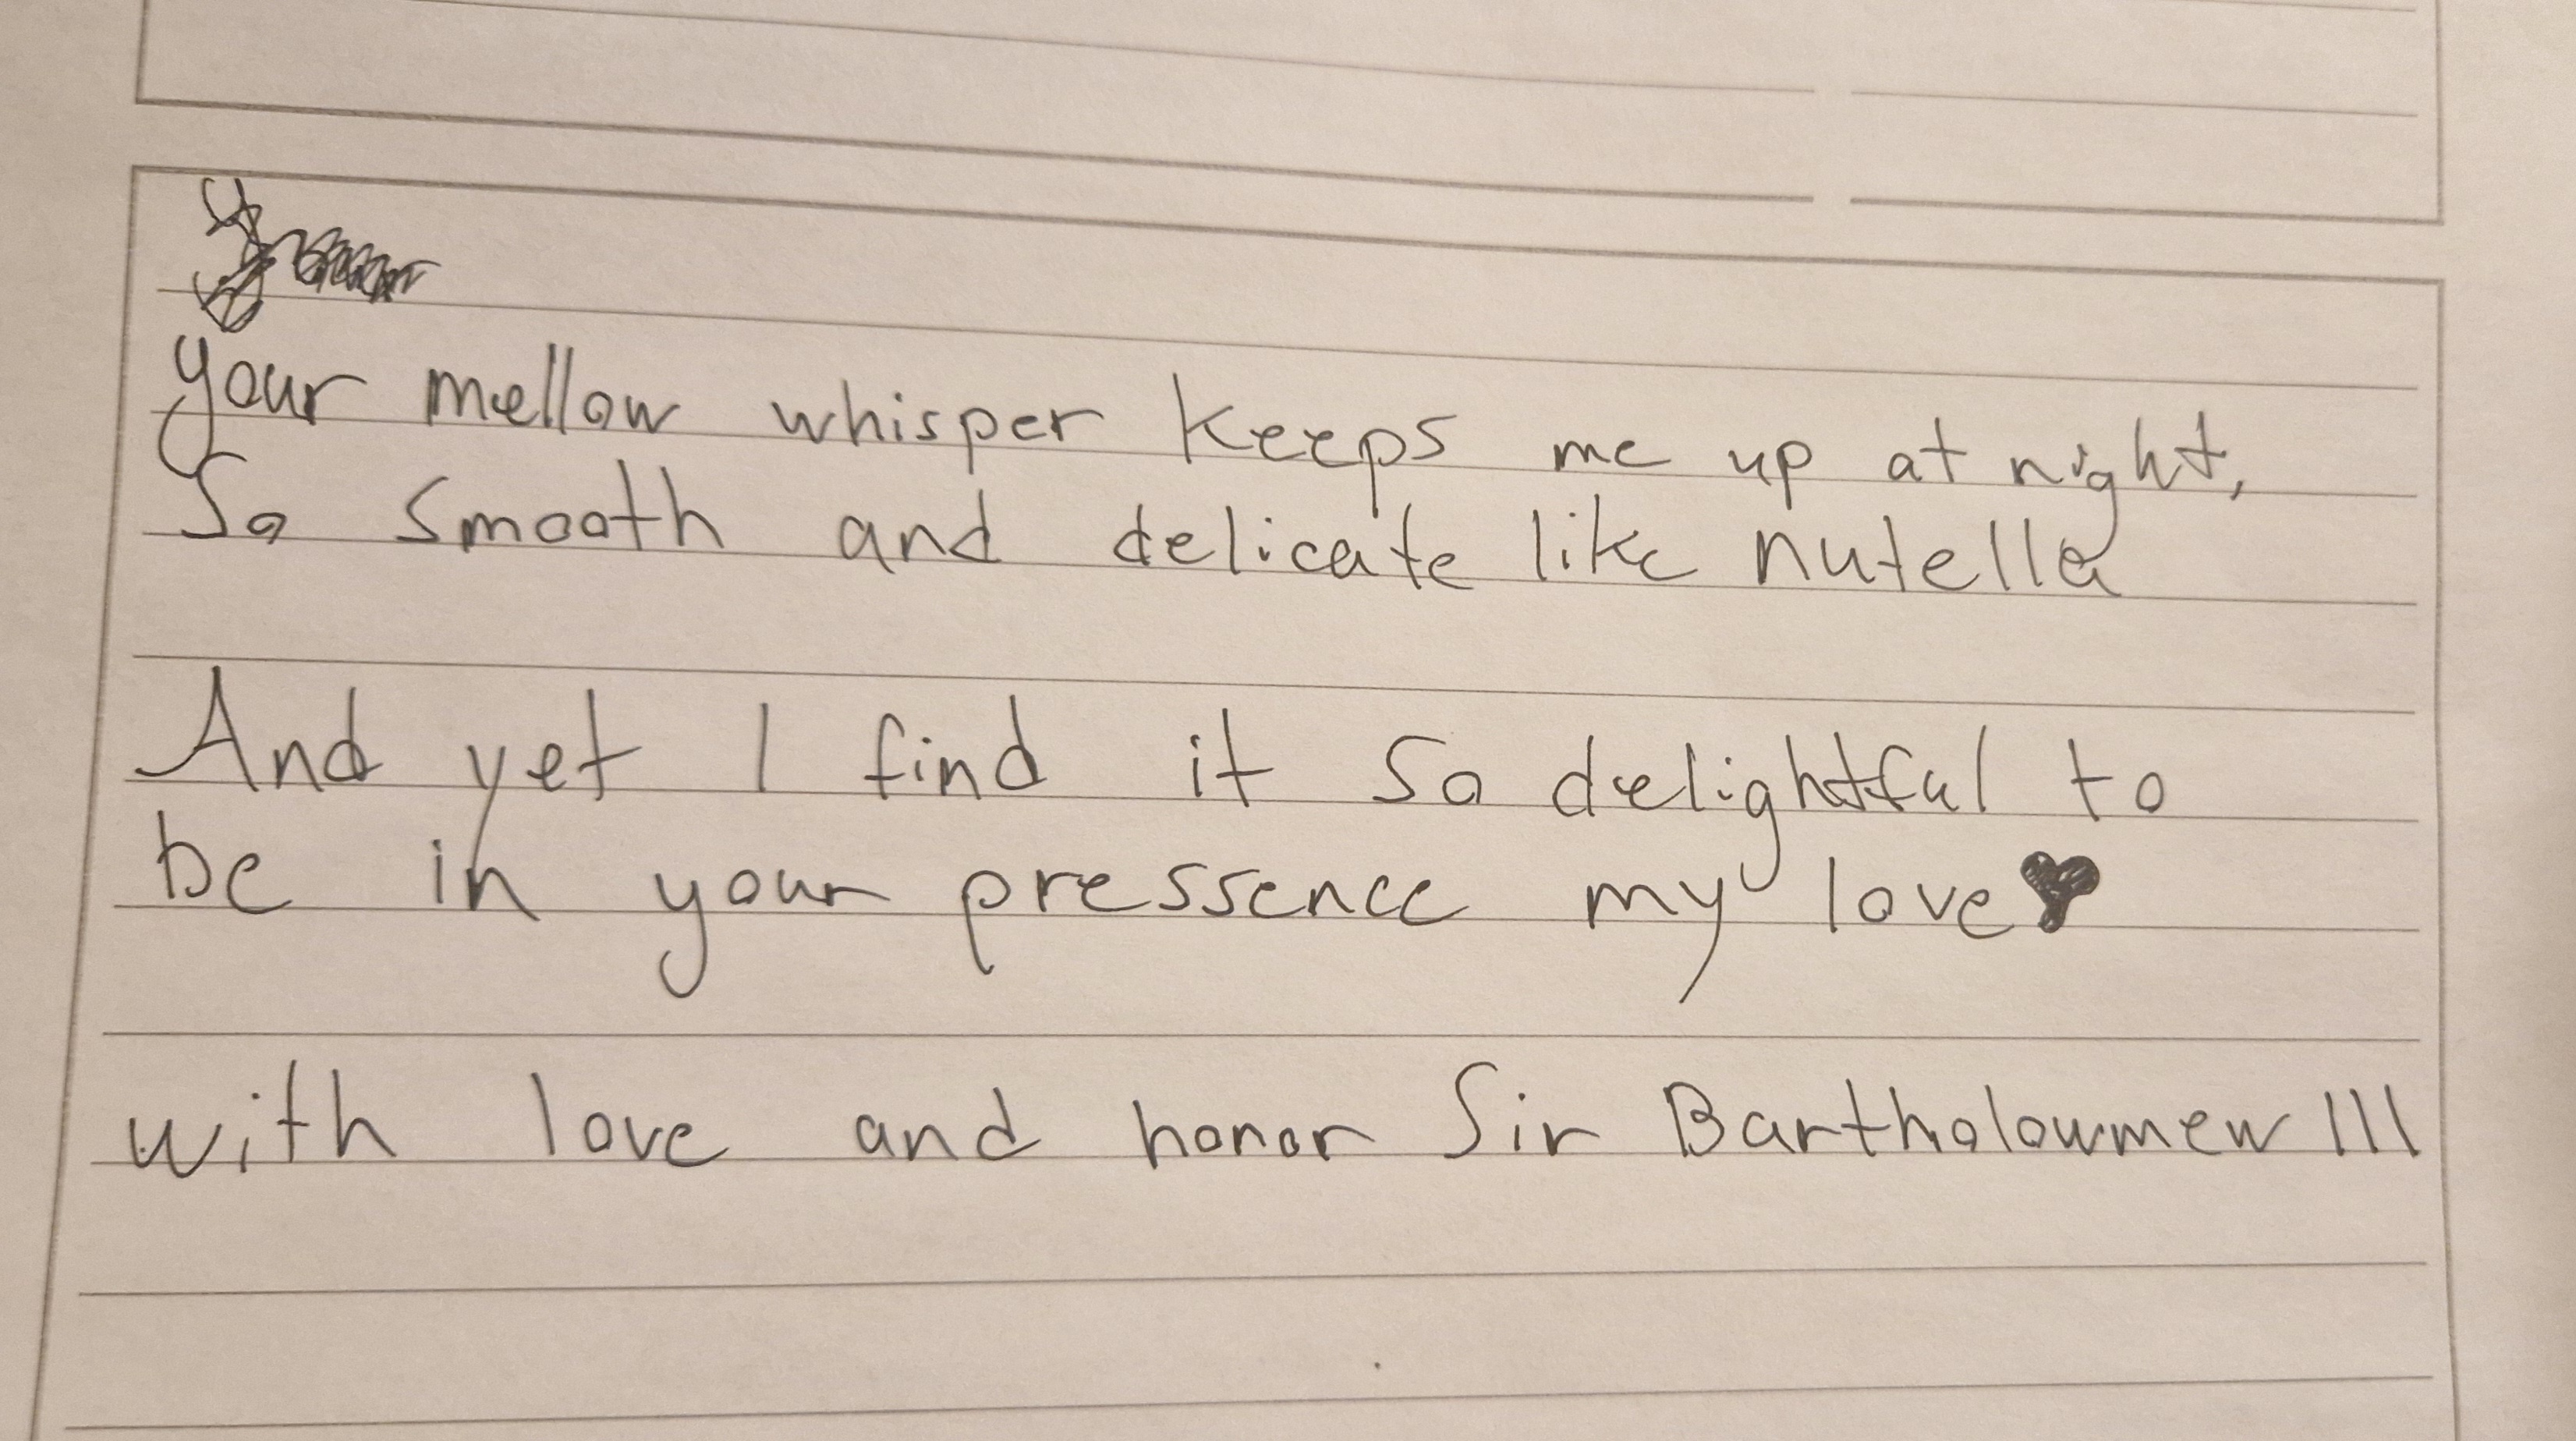 your mellow whisper keeps me up at night,
So smooth and delicate like nutella
And yet I find it so delightful to
be in your pressence my love♥
with love and honor Sir Bartholowmew III